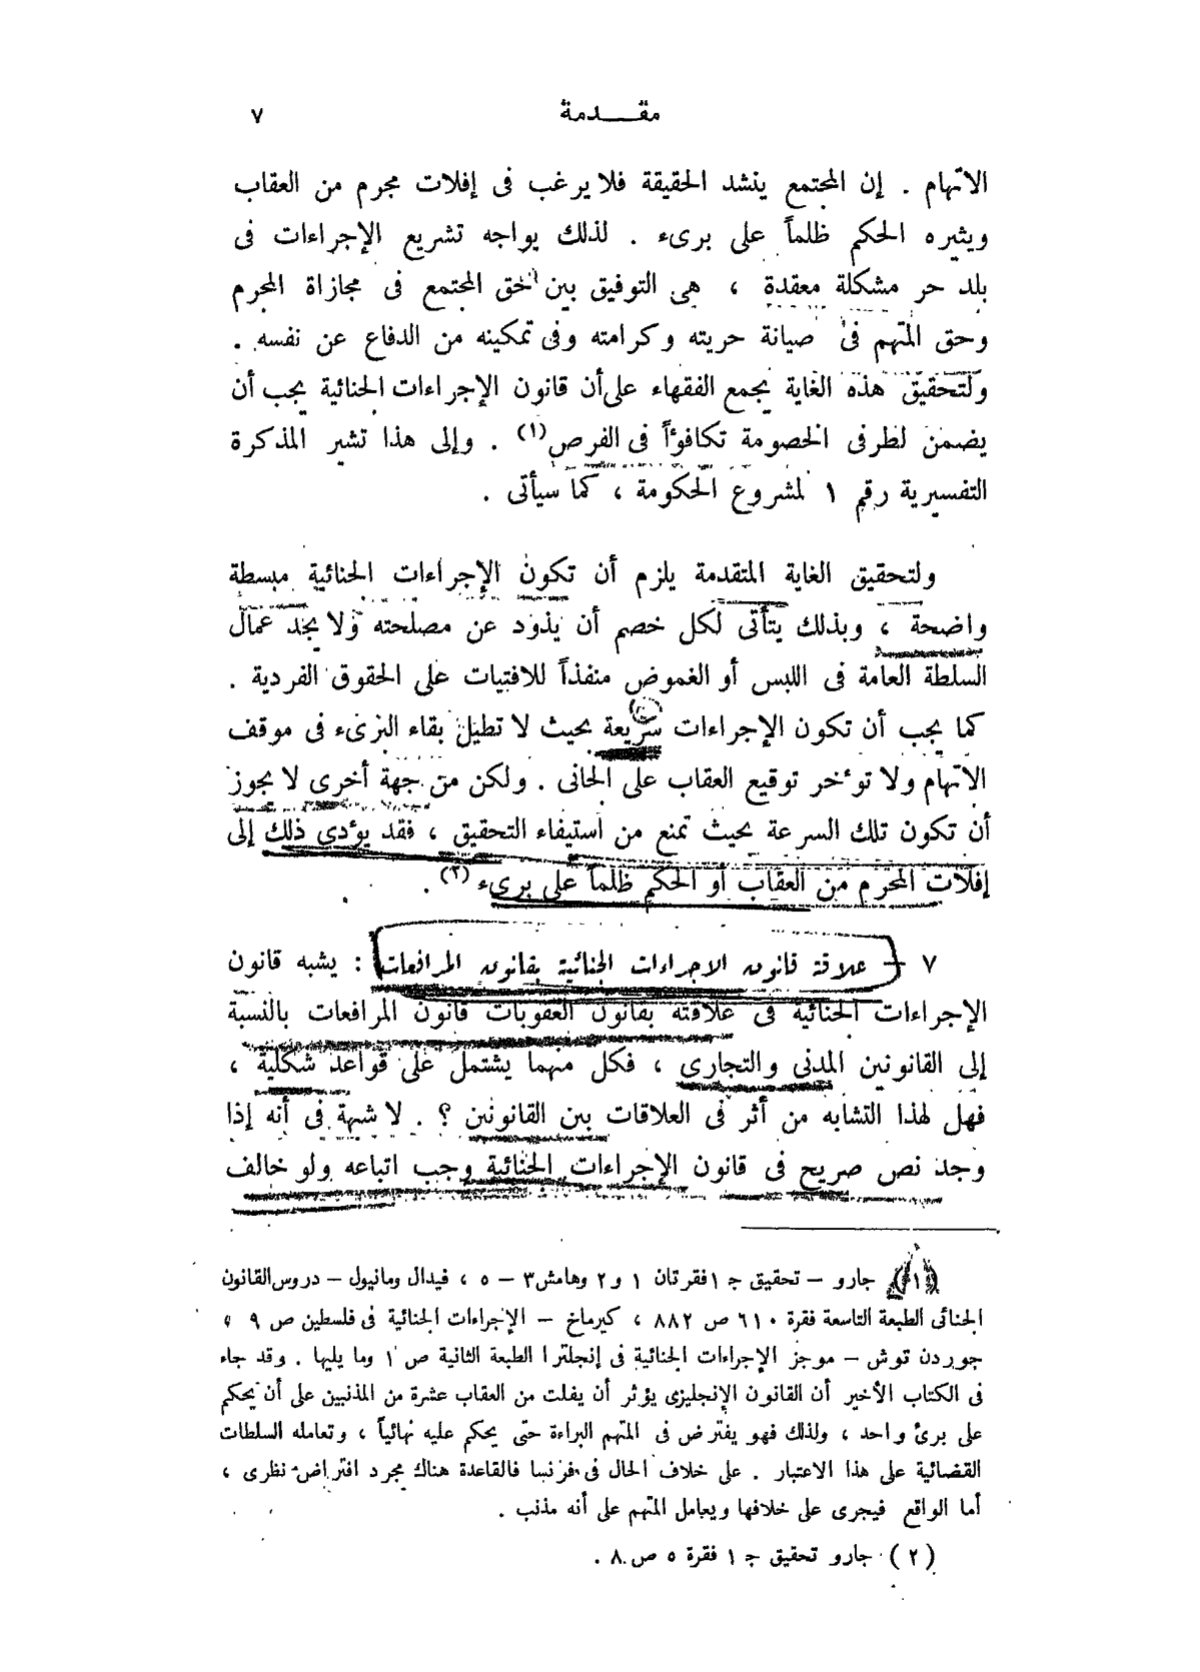 مقدمة ٧
الاتهام . إن المجتمع ينشد الحقيقة فلا يرغب فى إفلات مجرم من العقاب
ويثيره الحكم ظلماً على برىء . لذلك يواجه تشريع الإجراءات فى
بلد حر مشكلة معقدة ، هى التوفيق بين حق المجتمع فى مجازاة المجرم
وحق المتهم فى صيانة حريته وكرامته وفى تمكينه من الدفاع عن نفسه .
ولتحقيق هذه الغاية يجمع الفقهاء على أن قانون الإجراءات الجنائية يجب أن
يضمن لطرفى الخصومة تكافؤاً فى الفرص (١) . وإلى هذا تشير المذكرة
التفسيرية رقم ١ لمشروع الحكومة ، كما سيأتى .
ولتحقيق الغاية المتقدمة يلزم أن تكون الإجراءات الجنائية مبسطة
واضحة ، وبذلك يتأتى لكل خصم أن يذود عن مصلحته ولا يجد عمال
السلطة العامة فى اللبس أو الغموض منفذاً للافتيات على الحقوق الفردية .
كما يجب أن تكون الإجراءات سريعة بحيث لا تطيل بقاء البرىء فى موقف
الاتهام ولا تؤخر توقيع العقاب على الجانى . ولكن من جهة أخرى لا يجوز
أن تكون تلك السرعة بحيث تمنع من استيفاء التحقيق ، فقد يؤدى ذلك إلى
إفلات المجرم من العقاب أو الحكم ظلماً على برىء (٢) .
٧ – علاقة قانون الاجراءات الجنائية بقانون المرافعات : يشبه قانون
الإجراءات الجنائية فى علاقته بقانون العقوبات قانون المرافعات بالنسبة
إلى القانونين المدنى والتجارى ، فكل منهما يشتمل على قواعد شكلية ،
فهل لهذا التشابه من أثر فى العلاقات بين القانونين ؟ . لا شبهة فى أنه إذا
وجد نص صريح فى قانون الإجراءات الجنائية وجب اتباعه ولو خالف
(١) جارو – تحقيق ج ١ فقرتان ١ و ٢ وهامش ٣ – ٥ ، فيدال ومانيول – دروس القانون
الجنائى الطبعة التاسعة فقرة ٦١٠ ص ٨٨٢ ، كيرماخ – الإجراءات الجنائية فى فلسطين ص ٩ ،
جوردن توش – موجز الإجراءات الجنائية فى إنجلترا الطبعة الثانية ص ١ وما يليها . وقد جاء
فى الكتاب الأخير أن القانون الإنجليزى يؤثر أن يفلت من العقاب عشرة من المذنبين على أن يحكم
على برئ واحد ، ولذلك فهو يفترض فى المتهم البراءة حتى يحكم عليه نهائياً ، وتعامله السلطات
القضائية على هذا الاعتبار . على خلاف الحال فى فرنسا فالقاعدة هناك مجرد افتراض نظرى ،
أما الواقع فيجرى على خلافها ويعامل المتهم على أنه مذنب .
(٢) جارو تحقيق ج ١ فقرة ٥ ص ٨ .